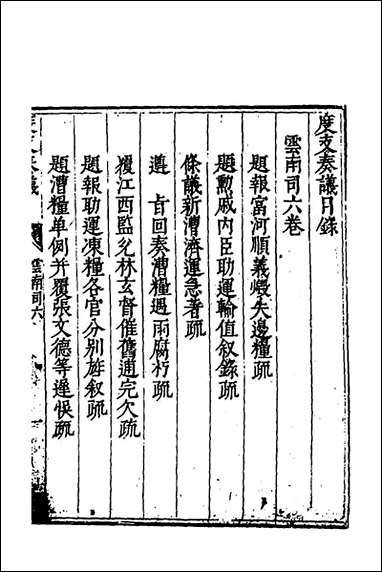 度支奏議目錄
雲南司六卷
題報富河順義燬失邊糧疏
題勳戚內臣助運輸值叙錄疏
條議新漕濟運急着疏
遵 旨回奏漕糧遇雨腐朽疏
覆江西監兌林玄督催舊逋完欠疏
題報助運凍糧各官分別旌叙疏
題漕糧單例并覆張文德等遲悞疏
雲南司六